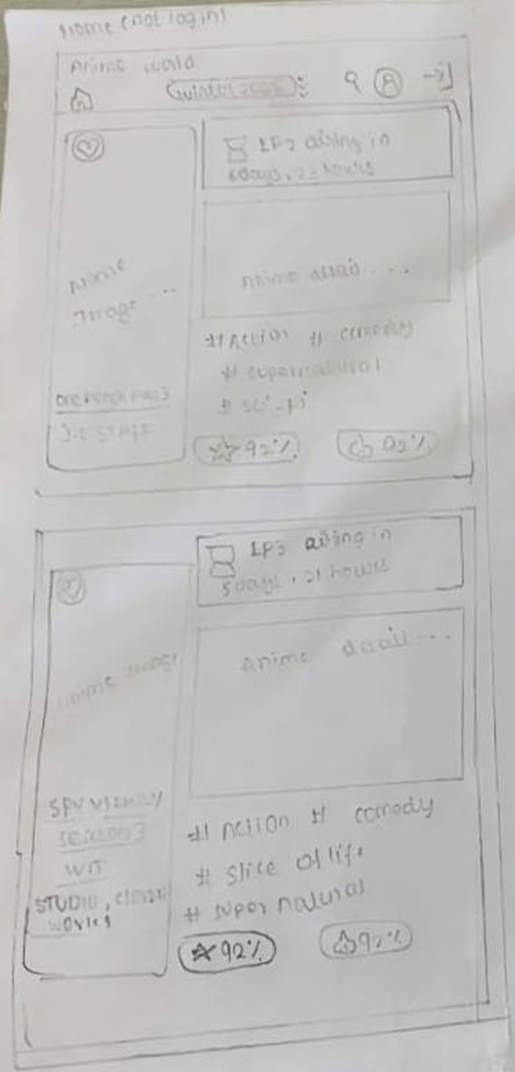 Home (not login)
Anime world
Winter 2025
EP2 airing in
6days, 2 hours
Anime
Image ...
Anime detail ...
# Action # comedy
# supernatural
# sci-fi
one punch man 3
J.C STAFF
92%
92%
EP3 airing in
5days, 21 hours
Anime image
Anime detail ...
SPY X FAMILY
season 3
WIT
STUDIO, CLOVER
WORKS
# Action # comody
# slice of life
# super natural
92%
92%